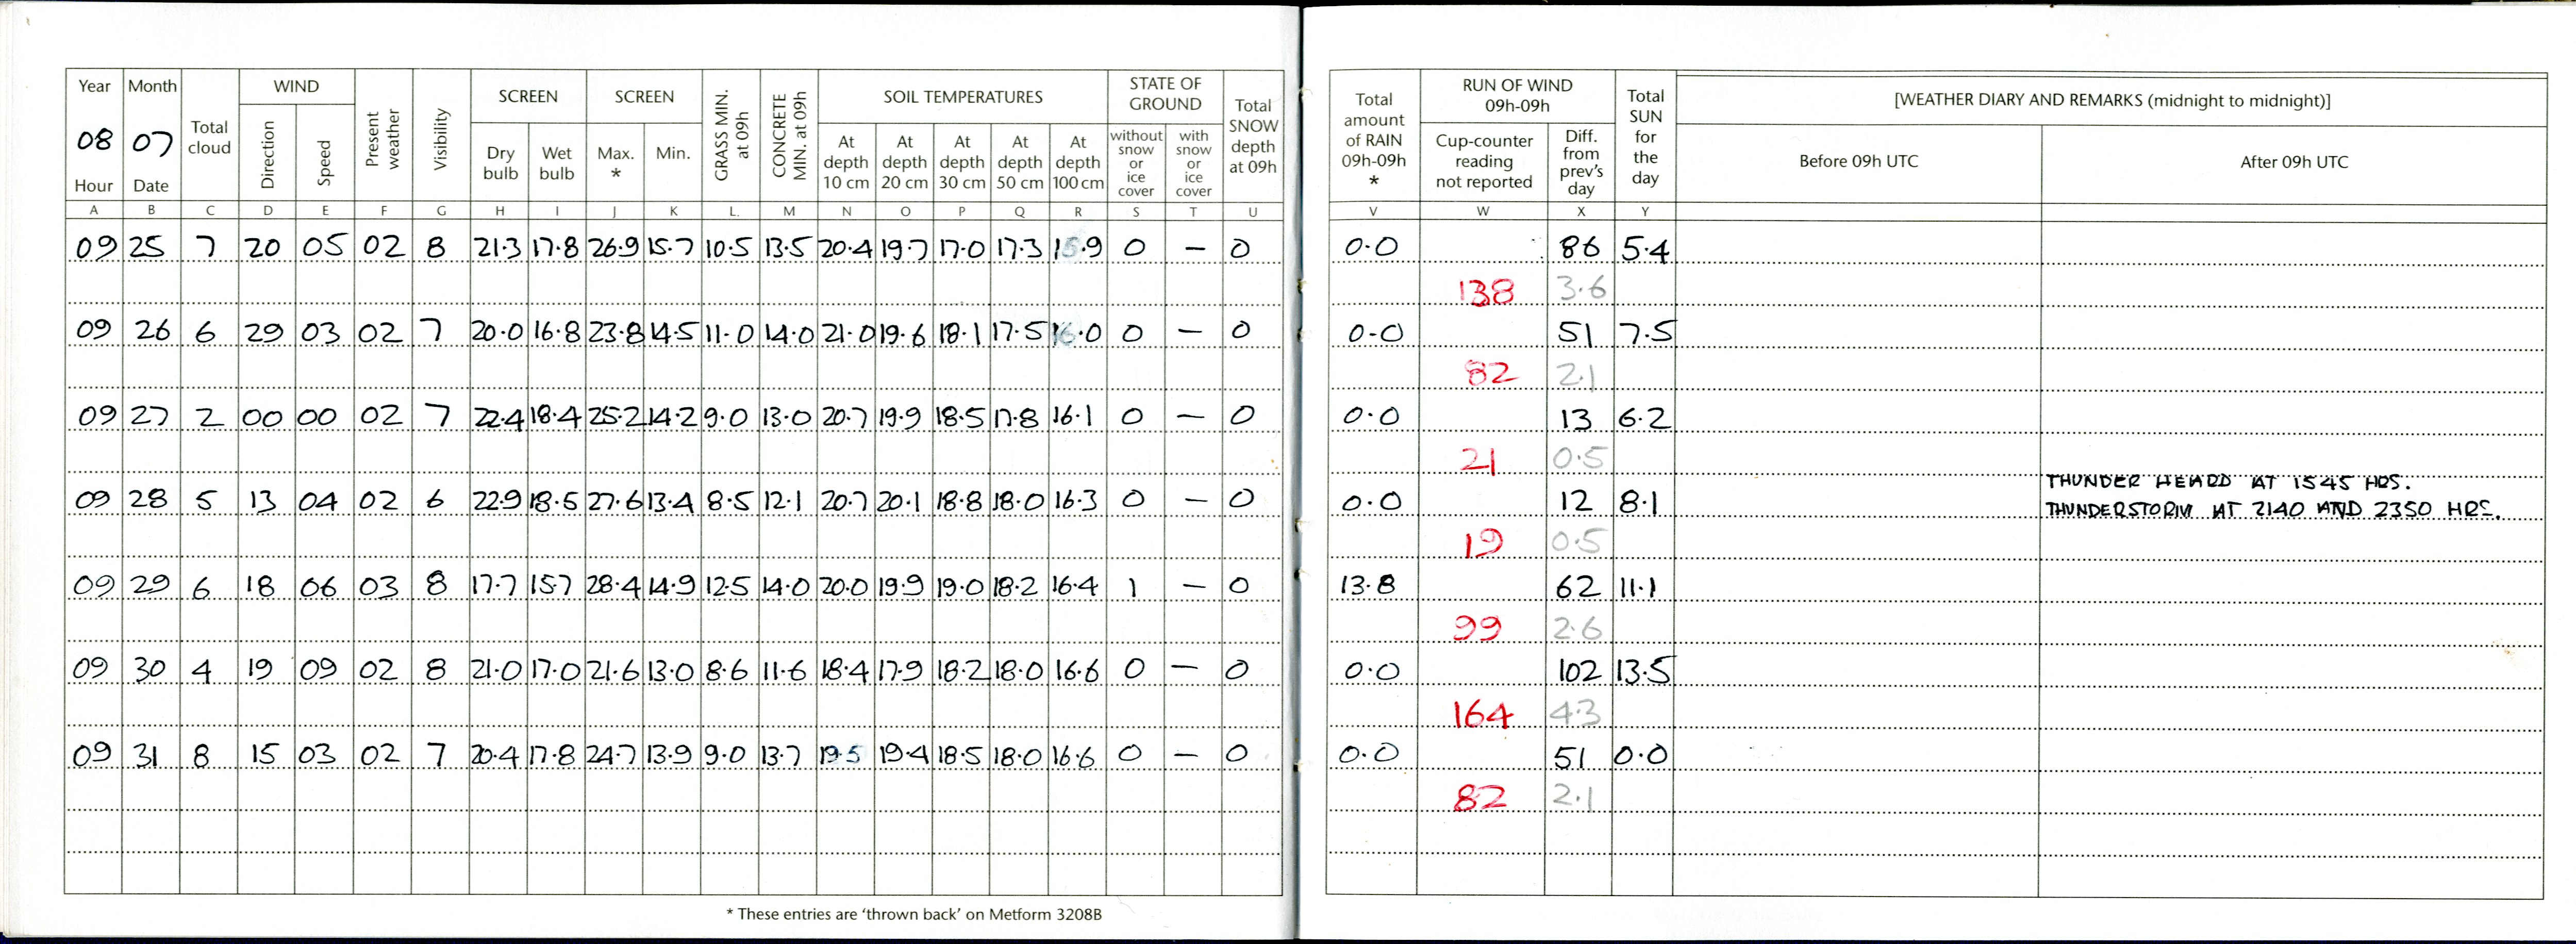 Year Month Total cloud WIND Present weather Visibility SCREEN SCREEN GRASS MIN. at 09h CONCRETE MIN. at 09h SOIL TEMPERATURES STATE OF GROUND Total SNOW depth at 09h Total amount of RAIN 09h-09h * RUN OF WIND 09h-09h Total SUN for the day [WEATHER DIARY AND REMARKS (midnight to midnight)]
08 07 Direction Speed Dry bulb Wet bulb Max. * Min. At depth 10 cm At depth 20 cm At depth 30 cm At depth 50 cm At depth 100 cm without snow or ice cover with snow or ice cover Cup-counter reading not reported Diff. from prev's day Before 09h UTC After 09h UTC
Hour Date
A B C D E F G H I J K L. M N O P Q R S T U V W X Y
09 25 7 20 05 02 8 21.3 17.8 26.9 15.7 10.5 13.5 20.4 19.7 17.0 17.3 15.9 0 – 0 0.0 86 5.4
138 3.6
09 26 6 29 03 02 7 20.0 16.8 23.8 14.5 11.0 14.0 21.0 19.6 18.1 17.5 16.0 0 – 0 0.0 51 7.5
82 2.1
09 27 2 00 00 02 7 22.4 18.4 25.2 14.2 9.0 13.0 20.7 19.9 18.5 17.8 16.1 0 – 0 0.0 13 6.2
21 0.5
THUNDER HEARD AT 1545 HRS.
09 28 5 13 04 02 6 22.9 18.5 27.6 13.4 8.5 12.1 20.7 20.1 18.8 18.0 16.3 0 – 0 0.0 12 8.1 THUNDERSTORM AT 2140 AND 2350 HRS.
19 0.5
09 29 6 18 06 03 8 17.7 15.7 28.4 14.9 12.5 14.0 20.0 19.9 19.0 18.2 16.4 1 – 0 13.8 62 11.1
99 2.6
09 30 4 19 09 02 8 21.0 17.0 21.6 13.0 8.6 11.6 18.4 17.9 18.2 18.0 16.6 0 – 0 0.0 102 13.5
164 4.3
09 31 8 15 03 02 7 20.4 17.8 24.7 13.9 9.0 13.7 19.5 19.4 18.5 18.0 16.6 0 – 0 0.0 51 0.0
82 2.1
* These entries are ‘thrown back’ on Metform 3208B